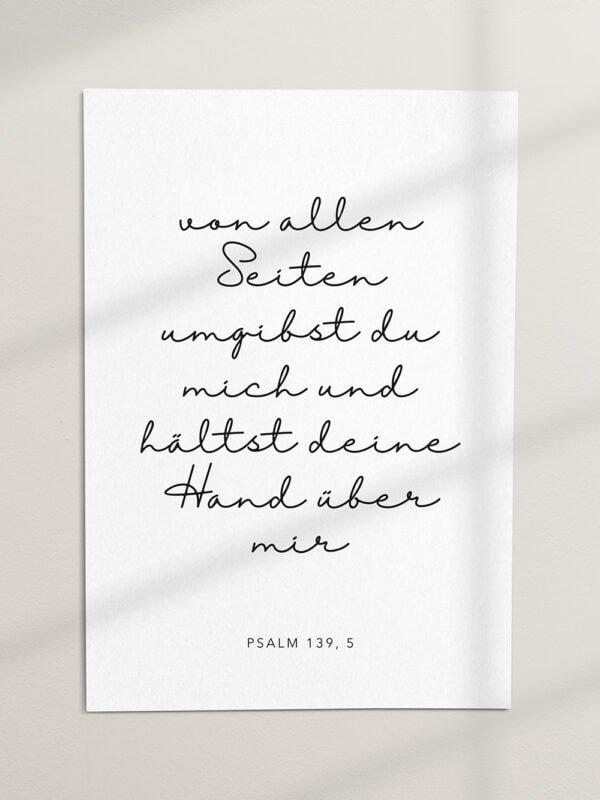 von allen
Seiten
umgibst du
mich und
hältst deine
Hand über
mir
PSALM 139, 5